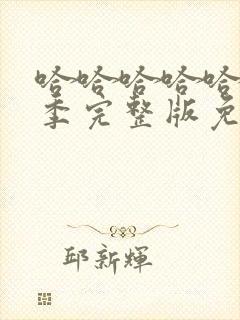 哈哈哈哈哈
季完整版免
邱新輝